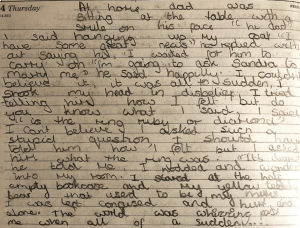 4 Thursday
At home dad was
sitting at the table with a
smile on his face. "Hi dad"
I said hanging up my coat "I
have some great news" he replied with
out saying hi. I waited for him to
carry on "I'm going to ask Sandra to
marry me" he said happily. I couldn't
believe it, it was all so sudden. I
shook my head in disbelief, I tried
telling him how I felt but do
you know what I said, I said
"is the ring ruby or
I can't believe I asked such a
stupid question I should have
told him how I felt but I asked
him what the ring was.
he told me. I nodded and
into my room. I stared at the
empty bookcase and my yellow ted
bear that used to be my
I was left confused and hurt and
alone. The world was whizzing past
me when all of a sudden...